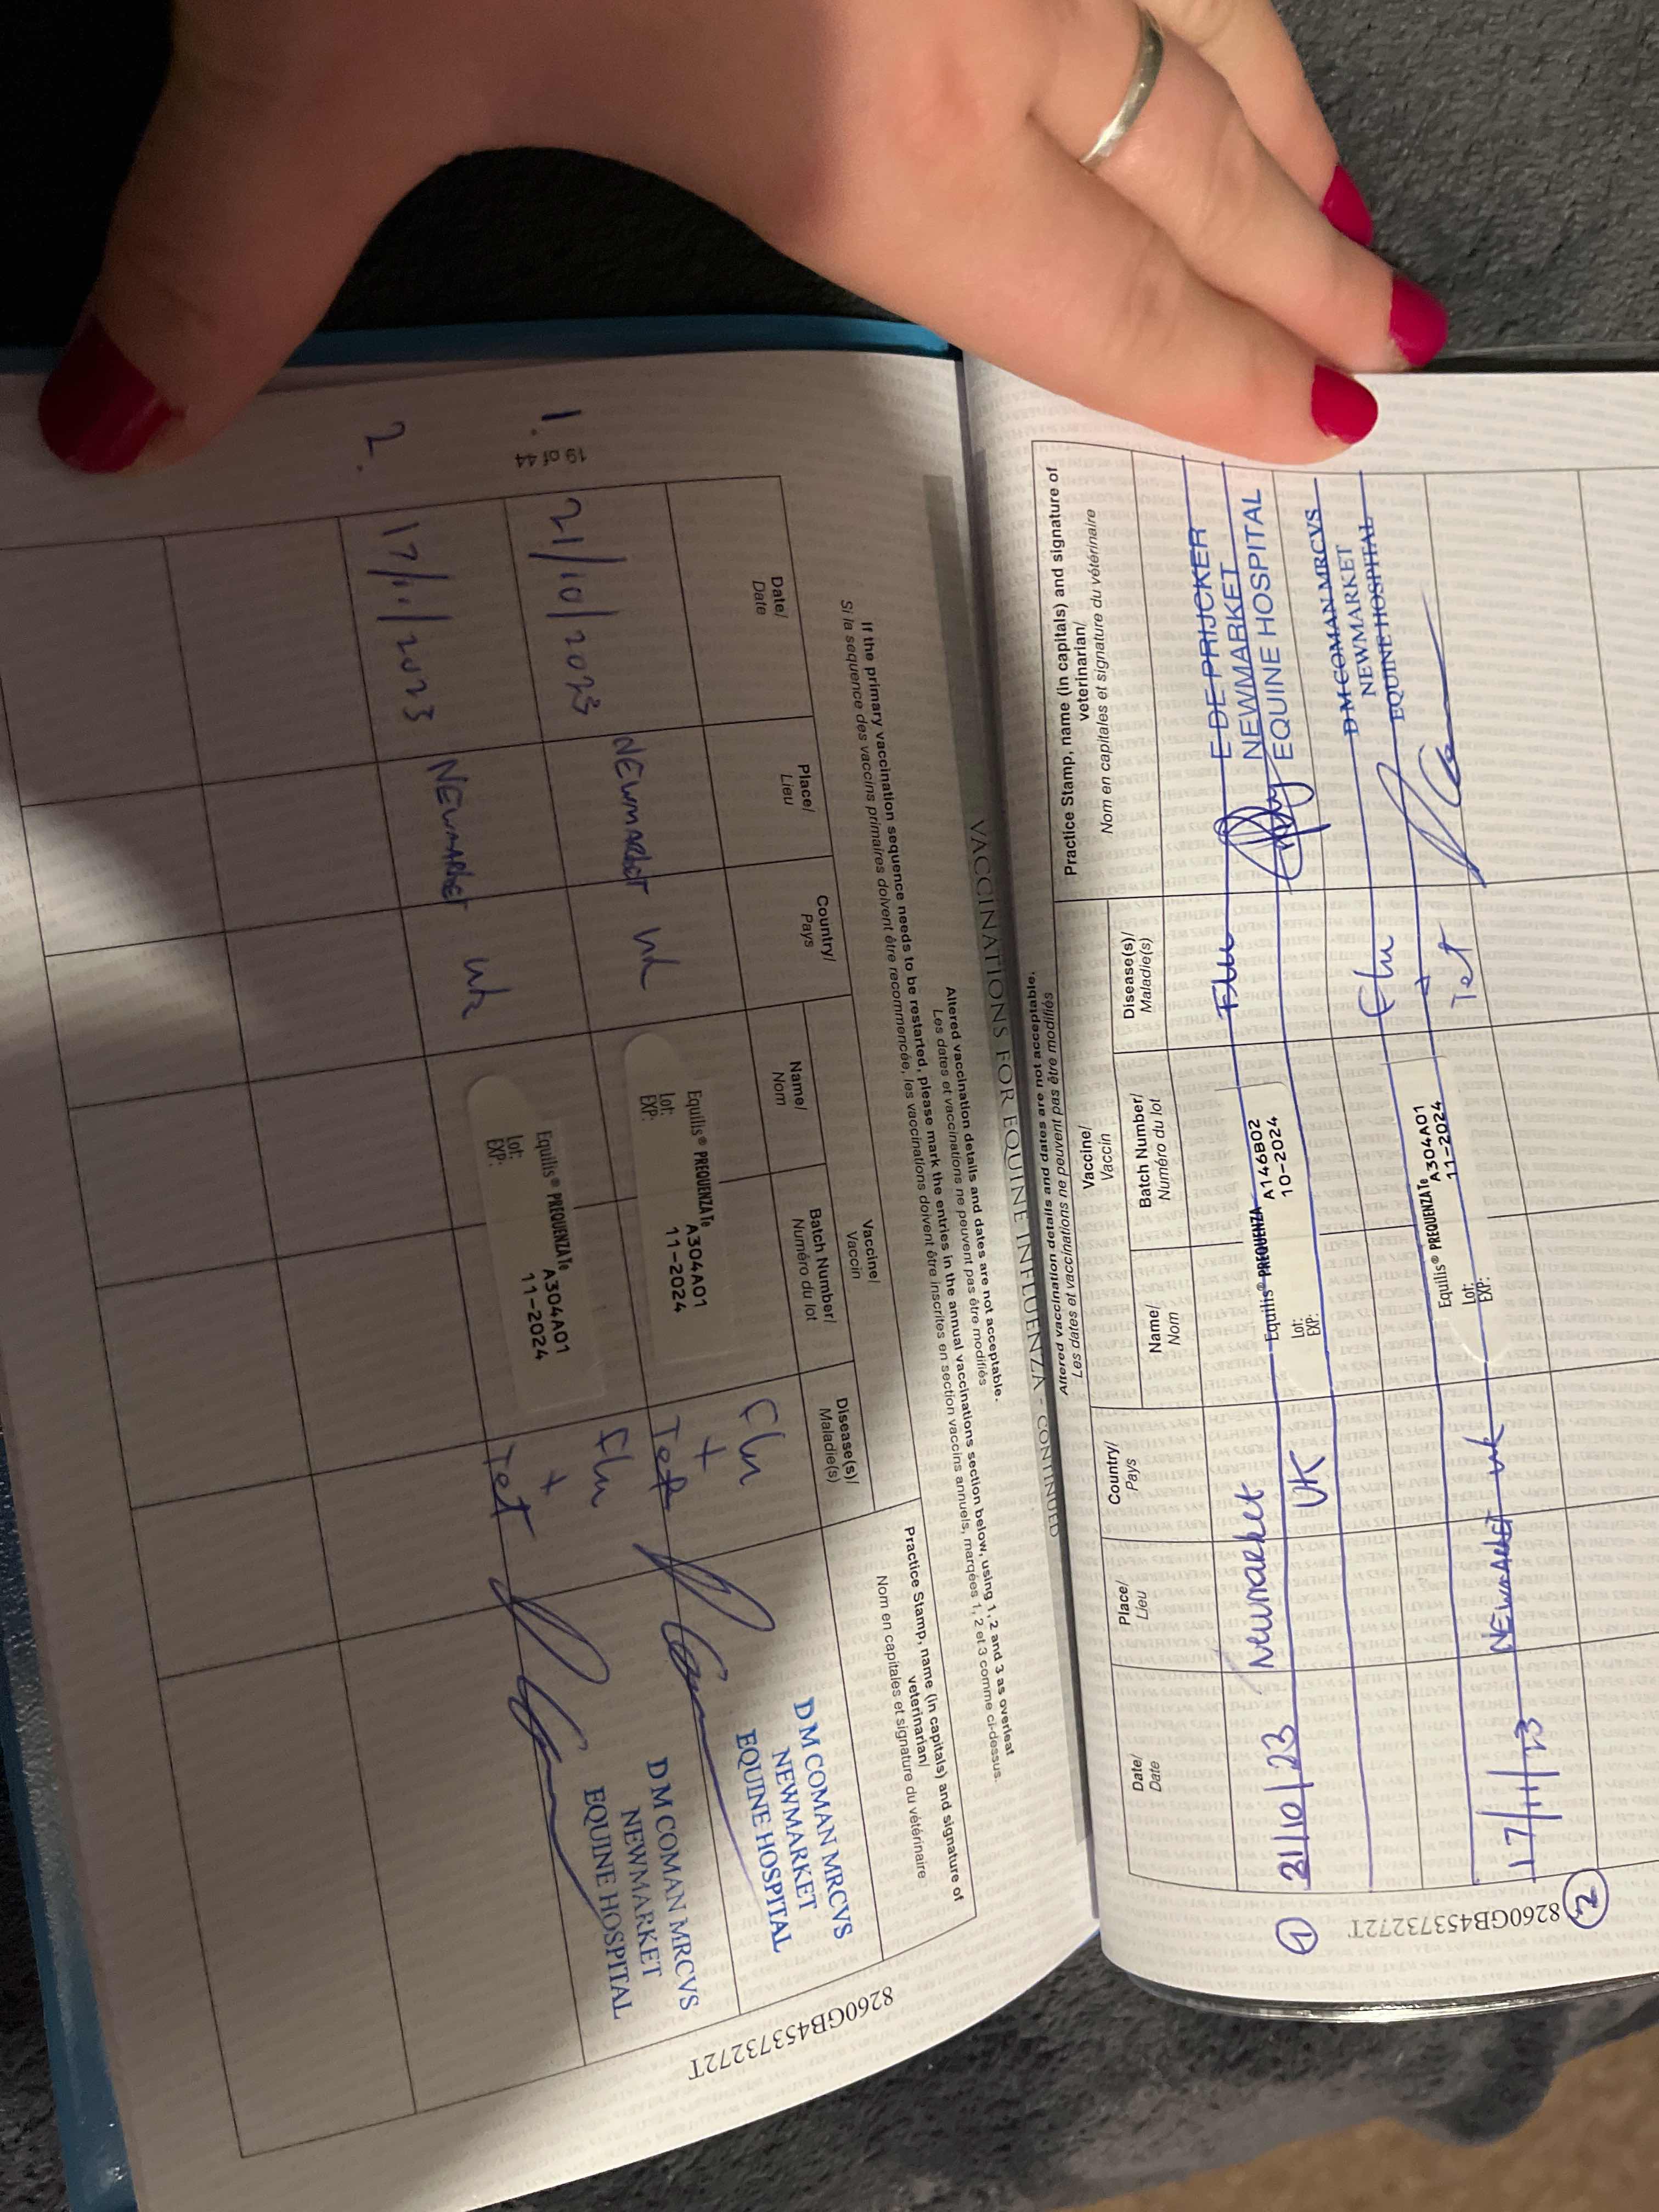 VACCINATIONS FOR EQUINE INFLUENZA - CONTINUED
Altered vaccination details and dates are not acceptable.
Les dates et vaccinations ne peuvent pas être modifiés
Date/
Date
Place/
Lieu
Country/
Pays
Vaccine/
Vaccin
Name/
Nom
Batch Number/
Numéro du lot
Disease(s)/
Maladie(s)
Practice Stamp, name (in capitals) and signature of
veterinarian/
Nom en capitales et signature du vétérinaire
1
21/10/23 Newmarket
UK
Equilis® PREQUENZA
Lot: A146B02
EXP: 10-2024
Flu
E DE PRIJCKER
NEWMARKET
EQUINE HOSPITAL
2
17/11/23 NEWMARKET UK
Equilis® PREQUENZA Te
Lot: A304A01
EXP: 11-2024
Flu
+
Tet
D M COMAN MRCVS
NEWMARKET
EQUINE HOSPITAL
8260GB45373272T
VACCINATIONS FOR EQUINE INFLUENZA
Altered vaccination details and dates are not acceptable.
Les dates et vaccinations ne peuvent pas être modifiés
If the primary vaccination sequence needs to be restarted, please mark the entries in the annual vaccinations section below, using 1, 2 and 3 as overleaf
Si la sequence des vaccins primaires doivent être recommencée, les vaccinations doivent être inscrites en section vaccins annuels, marqées 1, 2 et 3 comme ci-dessus.
Date/
Date
Place/
Lieu
Country/
Pays
Vaccine/
Vaccin
Name/
Nom
Batch Number/
Numéro du lot
Disease(s)/
Maladie(s)
Practice Stamp, name (in capitals) and signature of
veterinarian/
Nom en capitales et signature du vétérinaire
1. 21/10/2023 NEWMARKET UK
Equilis® PREQUENZA Te
Lot: A304A01
EXP: 11-2024
Flu
+
Tet
D M COMAN MRCVS
NEWMARKET
EQUINE HOSPITAL
2. 17/11/2023 NEWMARKET UK
Equilis® PREQUENZA Te
Lot: A304A01
EXP: 11-2024
Flu
+
Tet
D M COMAN MRCVS
NEWMARKET
EQUINE HOSPITAL
19 of 44
8260GB45373272T